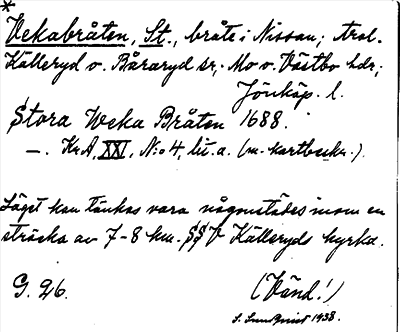 *
Vekabråten, St., bråte i Nissan; trol.
Källeryd o. Båraryd sr; Mo o. Västbo hdr;
Jönköp. l.
Stora Weka Bråten 1688.
—. KrA, XXI, N:o 4, lit. a. (m. kartbeskr.).
Läget kan tänkas vara någonstädes inom en
sträcka av 7-8 km. SSV Källeryds kyrka.
G. 26. (Vänd!)
S. Sundqvist 1938.